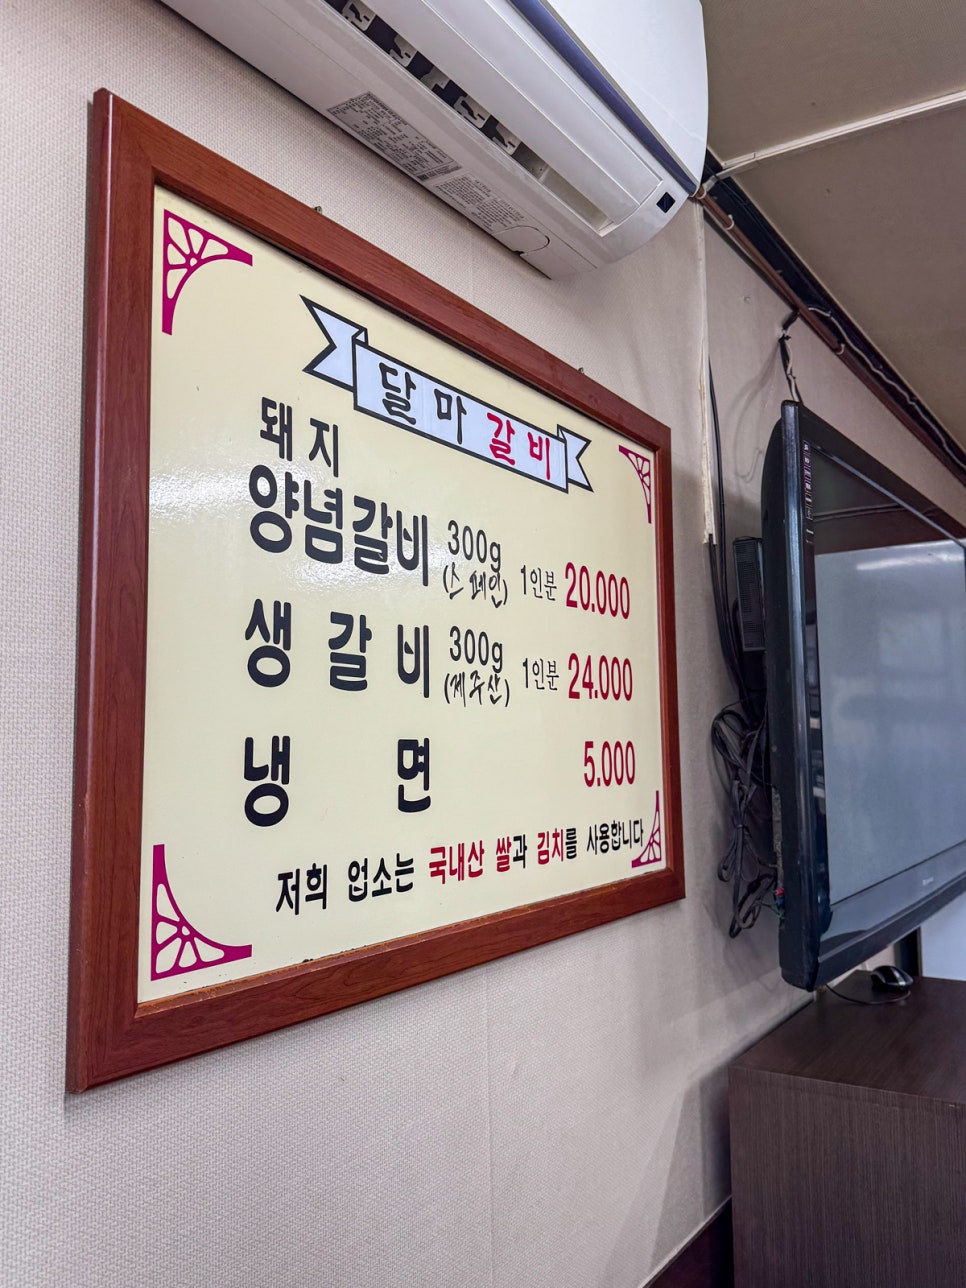 달마갈비
돼지
양념갈비 300g (스페인) 1인분 20.000
생갈비 300g (제주산) 1인분 24.000
냉면 5.000
저희 업소는 국내산 쌀과 김치를 사용합니다